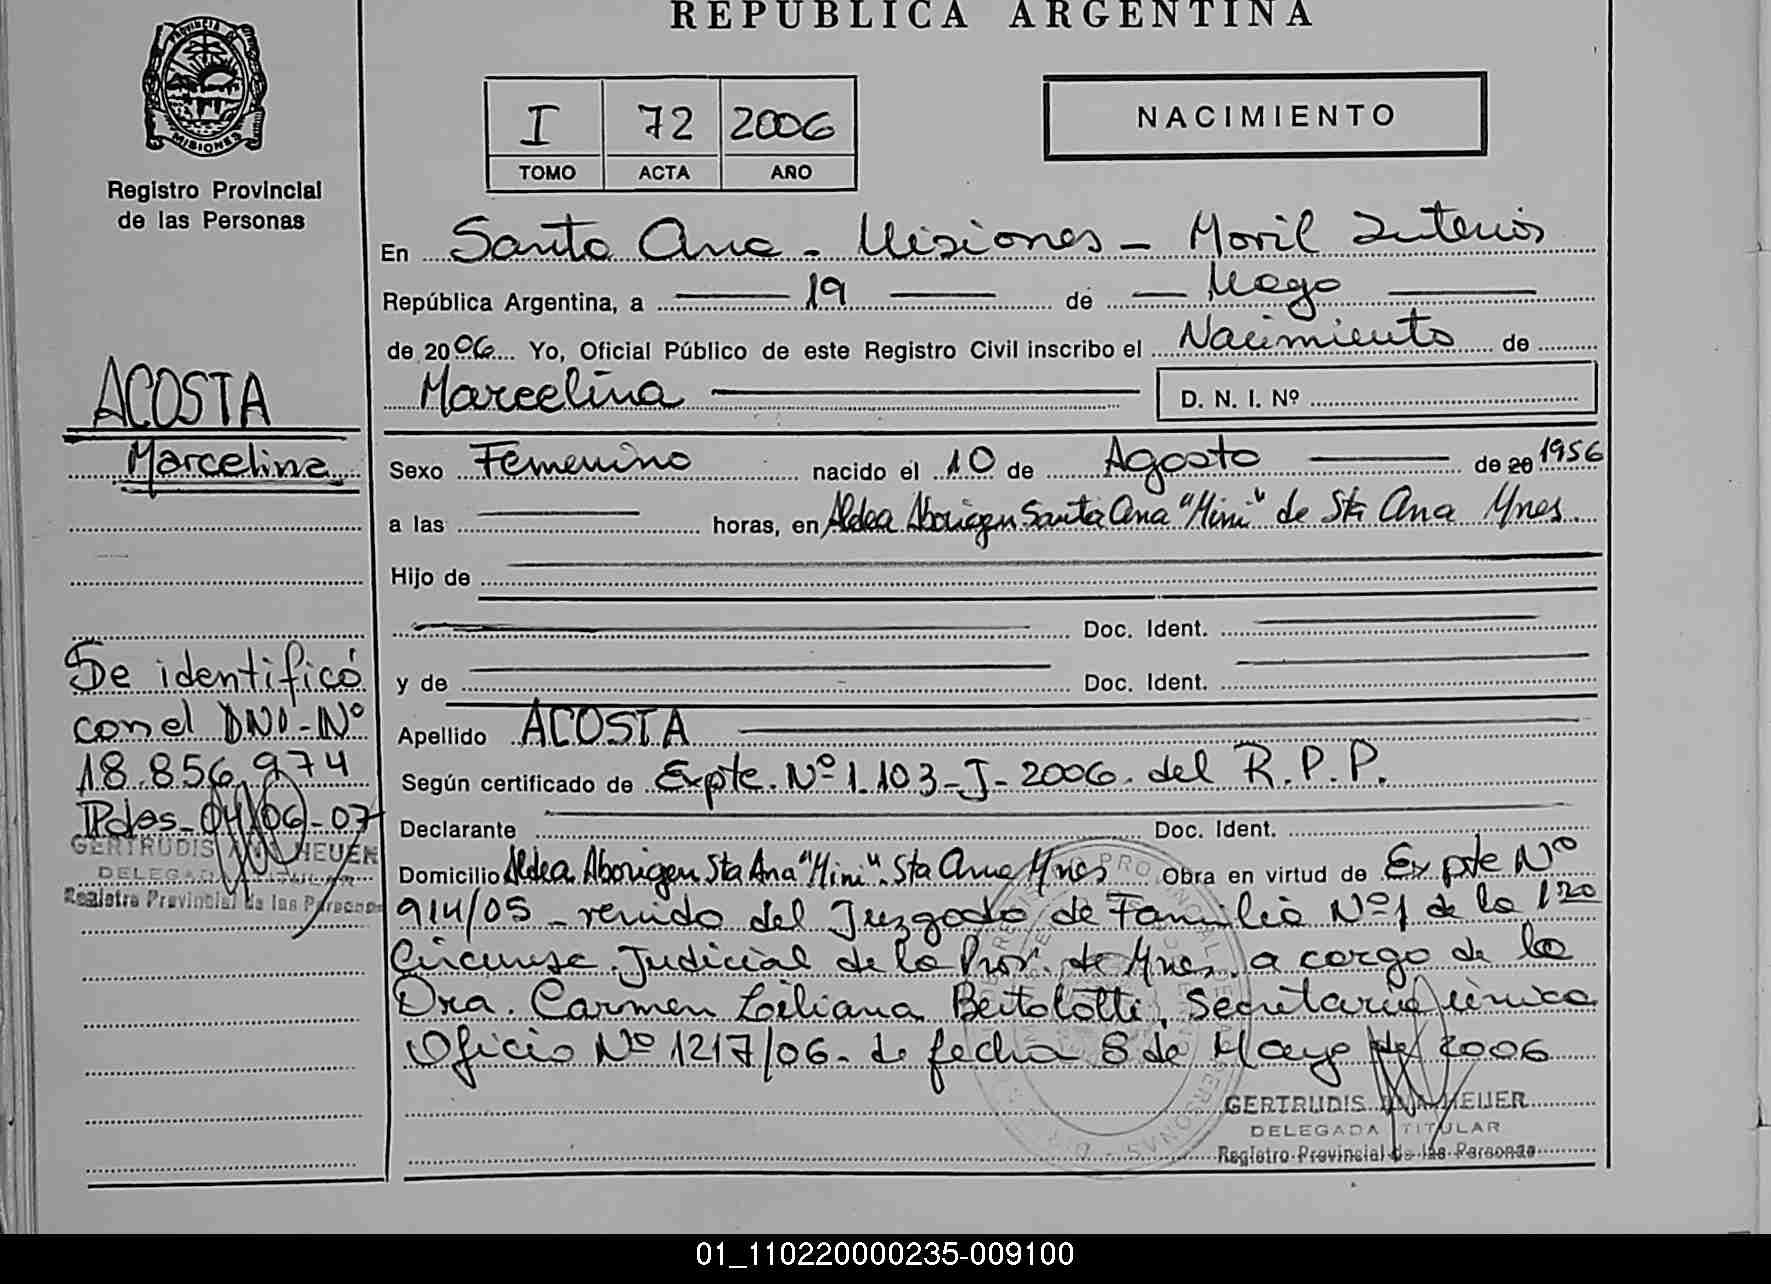 REPUBLICA ARGENTINA
PROVINCIA DE
MISIONES
Registro Provincial
de las Personas
I 72 2006
TOMO ACTA AÑO
NACIMIENTO
En Santa Ana - Misiones - Movil Interior
República Argentina, a 19 de Mayo
de 2006 Yo, Oficial Público de este Registro Civil inscribo el Nacimiento de
Marcelina D. N. I. Nº
ACOSTA
Marcelina
Sexo Femenino nacido el 10 de Agosto de 20 1956
a las horas, en Aldea Aborigen Santa Ana "Mini" de Sta Ana Mnes
Hijo de
Doc. Ident.
y de Doc. Ident.
Apellido ACOSTA
Según certificado de Expte. Nº 1.103-J-2006. del R.P.P.
Declarante Doc. Ident.
Domicilio Aldea Aborigen Sta Ana "Mini". Sta Ana Mnes Obra en virtud de Expte Nº
914/05 - venido del Juzgado de Familia Nº 1 de la 1ra
Circunsc. Judicial de la Prov. de Mnes. a cargo de la
Dra. Carmen Liliana Bertolotti, Secretaria única
Oficio Nº 1217/06- de fecha 8 de Mayo de 2006
GERTRUDIS ANA HEUER
DELEGADA TITULAR
Registro Provincial de las Personas
Se identificó
con el DNI-Nº
18.856.974
Pdas-04/06-07
GERTRUDIS ANA HEUER
DELEGADA TITULAR
Registro Provincial de las Personas
01_110220000235-009100